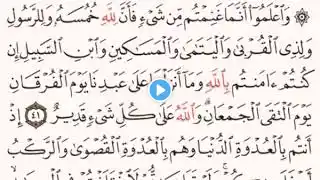 ۞ وَٱعْلَمُوٓا۟ أَنَّمَا غَنِمْتُم مِّن شَىْءٍ فَأَنَّ لِلَّهِ خُمُسَهُۥ وَلِلرَّسُولِ
وَلِذِى ٱلْقُرْبَىٰ وَٱلْيَتَٰمَىٰ وَٱلْمَسَٰكِينِ وَٱبْنِ ٱلسَّبِيلِ إِن
كُنتُمْ ءَامَنتُم بِٱللَّهِ وَمَآ أَنزَلْنَا عَلَىٰ عَبْدِنَا يَوْمَ ٱلْفُرْقَانِ
يَوْمَ ٱلْتَقَى ٱلْجَمْعَانِ وَٱللَّهُ عَلَىٰ كُلِّ شَىْءٍ قَدِيرٌ ٤١ إِذْ
أَنتُم بِٱلْعُدْوَةِ ٱلدُّنْيَا وَهُم بِٱلْعُدْوَةِ ٱلْقُصْوَىٰ وَٱلرَّكْبُ